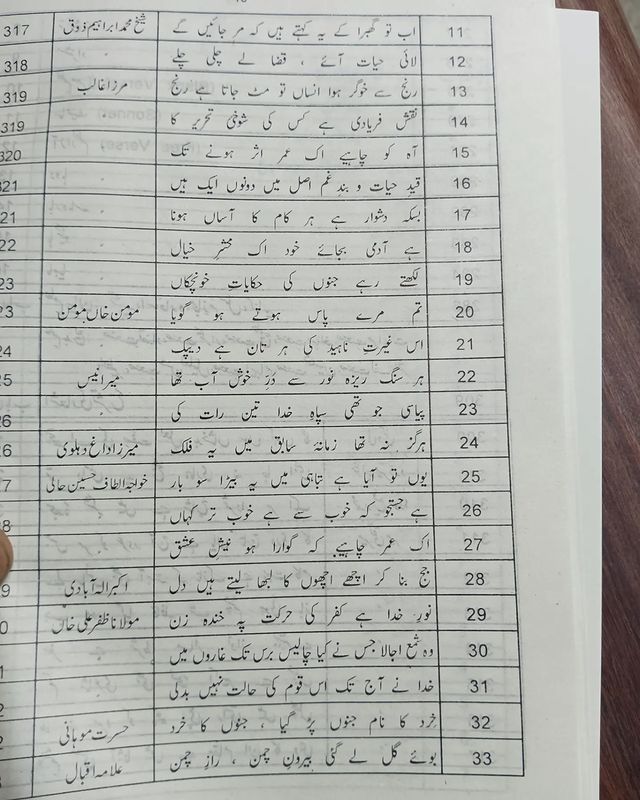 11 اب تو گھبرا کے یہ کہتے ہیں کہ مر جائیں گے شیخ محمد ابراہیم ذوق 317
12 لائی حیات آئے ، قضا لے چلی چلے 318
13 رنج سے خوگر ہوا انساں تو مٹ جاتا ہے رنج مرزا غالب 319
14 نقش فریادی ہے کس کی شوخیٔ تحریر کا 319
15 آہ کو چاہیے اک عمر اثر ہونے تک 320
16 قید حیات و بندِ غم اصل میں دونوں ایک ہیں 321
17 بسکہ دشوار ہے ہر کام کا آساں ہونا 21
18 ہے آدمی بجائے خود اک محشر خیال 22
19 لکھتے رہے جنوں کی حکایاتِ خونچکاں 23
20 تم مرے پاس ہوتے ہو گویا مومن خاں مومن 23
21 اس غیرتِ ناہید کی ہر تان ہے دیپک 24
22 ہر سنگ ریزہ نور سے دُرِّ خوش آب تھا میر انیس 25
23 پیاسی جو تھی سپاہِ خدا تین رات کی 26
24 ہرگز نہ تھا زمانۂ سابق میں یہ فلک میرزا داغ دہلوی 26
25 یوں تو آیا ہے تباہی میں یہ بیڑا سو بار خواجہ الطاف حسین حالی 7
26 ہے جستجو کہ خوب سے ہے خوب تر کہاں 8
27 اک عمر چاہیے کہ گوارا ہو نیشِ عشق
28 جج بنا کر اچھے اچھوں کا لبھا لیتے ہیں دل اکبر الہ آبادی 9
29 نورِ خدا ہے کفر کی حرکت پہ خندہ زن مولانا ظفر علی خاں 0
30 وہ شمع اجالا جس نے کیا چالیس برس تک غاروں میں 1
31 خدا نے آج تک اس قوم کی حالت نہیں بدلی 2
32 خرد کا نام جنوں پڑ گیا ، جنوں کا خرد حسرت موہانی 2
33 بوئے گل لے گئی بیرونِ چمن ، رازِ چمن علامہ اقبال